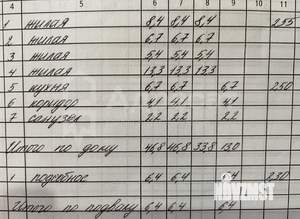 4 5 6 7 8 9 10 11
1 жилая 8,4 8,4 8,4 235
2 жилая 6,7 6,7 6,7
3 жилая 5,4 5,4 5,4
4 жилая 13,3 13,3 13,3
5 кухня 6,7 6,7 6,7 250
6 коридор 4,1 4,1 4,1
7 санузел 2,2 2,2 2,2
Итого по дому 46,8 46,8 33,8 13.0
1 подсобное 6,4 6,4 6,4 230
Итого по подвалу 6,4 6,4 6,4